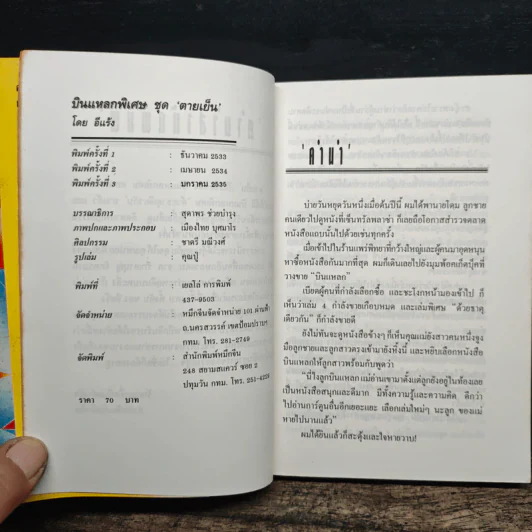 บินแหลกพิเศษ ชุด 'ตายเย็น'
โดย อีแร้ง
พิมพ์ครั้งที่ 1 : ธันวาคม 2533
พิมพ์ครั้งที่ 2 : เมษายน 2534
พิมพ์ครั้งที่ 3 : มกราคม 2535
บรรณาธิการ : สุดาพร ช่วยบำรุง
ภาพปกและภาพประกอบ : เมืองไทย บุศมาโร
ศิลปกรรม : ชาตรี มณีวงศ์
รูปเล่ม : คุณปู่
พิมพ์ที่ : เยลโล่ การพิมพ์
437-9503
จัดจำหน่าย : หมึกจีนจัดจำหน่าย 101 ผ่านฟ้า
ถ.นครสวรรค์ เขตป้อมปราบฯ
กทม. โทร. 281-2749
จัดพิมพ์ : สำนักพิมพ์หมึกจีน
248 สยามสแควร์ ซอย 2
ปทุมวัน กทม. โทร. 251-
ราคา 70 บาท
'คำนำ'
บ่ายวันหยุดวันหนึ่งเมื่อต้นปีนี้ ผมได้พานายโดม ลูกชาย
คนเดียวไปดูหนังที่เซ็นทรัลพลาซ่า ก็เลยถือโอกาสสำรวจตลาด
หนังสือแถบนั้นไปด้วยเช่นทุกครั้ง
เมื่อเข้าไปในร้านแพร่พิทยาที่กว้างใหญ่และผู้คนมาอุดหนุน
หาซื้อหนังสือกันมากที่สุด ผมก็เดินเลยไปยังมุมพ้อคเก็ตบุ๊คที่
วางขาย "บินแหลก"
เบียดผู้คนที่กำลังเลือกซื้อ และชะโงกหน้ามองเข้าไป ก็
เห็นว่าเล่ม 4 กำลังขายเกือบหมด และเล่มพิเศษ "ด้วยธาตุ
เดียวกัน" ก็กำลังขายดี
ยังไม่ทันจะดูหนังสือข้างๆ ก็เห็นคุณแม่ยังสาวคนหนึ่งจูง
มือลูกชายและลูกสาวตรงเข้ามายังที่นี้ และหยิบเลือกหนังสือ
บินแหลกให้ลูกสาวพร้อมกับพูดว่า
"นี่ไงลูกบินแหลก แม่อ่านเขามาตั้งแต่ลูกยังอยู่ในท้องเลย
เป็นหนังสือสนุกและดีมาก มีทั้งความรู้และความคิด ดีกว่า
ไปอ่านการ์ตูนอื่นอีกเยอะแยะ เลือกเล่มใหม่ๆ นะลูก ของแม่
หายไปนานแล้ว"
ผมได้ยินแล้วก็สะดุ้งและใจหายวาบ!